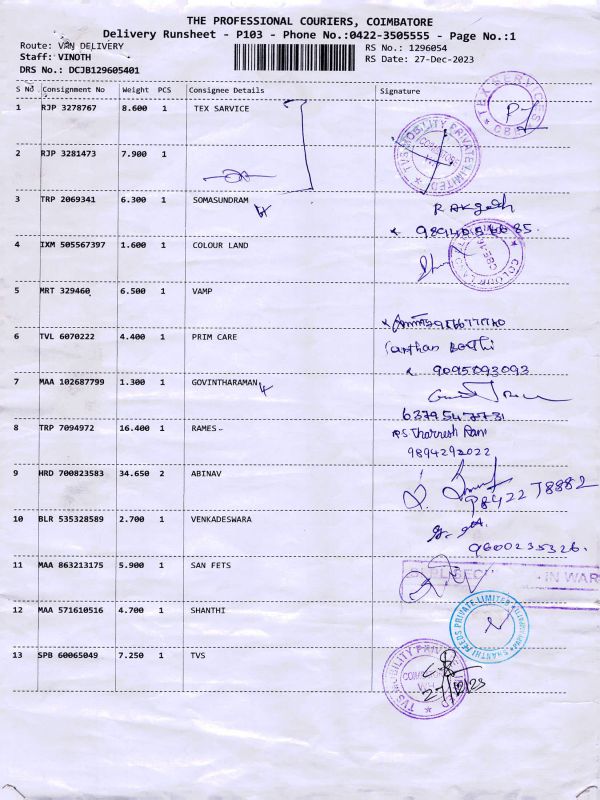 THE PROFESSIONAL COURIERS, COIMBATORE
Delivery Runsheet - P103 - Phone No.:0422-3505555 - Page No.:1
Route: VAN DELIVERY
RS No.: 1296054
Staff: VINOTH
RS Date: 27-Dec-2023
DRS No.: DCJB129605401
S No Consignment No Weight PCS Consignee Details Signature
1 RJP 3278767 8.600 1 TEX SARVICE
TEX SERVICES
2 RJP 3281473 7.900 1
TVS MOBILITY PRIVATE LIMITED
3 TRP 2069341 6.300 1 SOMASUNDRAM
4 IXM 505567397 1.600 1 COLOUR LAND
5 MRT 329460 6.500 1 VAMP
6 TVL 6070222 4.400 1 PRIM CARE
9095093093
7 MAA 102687799 1.300 1 GOVINTHARAMAN
8 TRP 7094972 16.400 1 RAMES
9894292022
9 HRD 700823583 34.650 2 ABINAV
98422 78882
10 BLR 535328589 2.700 1 VENKADESWARA
9600235326.
11 MAA 863213175 5.900 1 SAN FETS
IN WAR
12 MAA 571610516 4.700 1 SHANTHI
SHANTHI FEEDS PRIVATE LIMITED
13 SPB 60065049 7.250 1 TVS
TVS MOBILITY PRIVATE
27/12/23